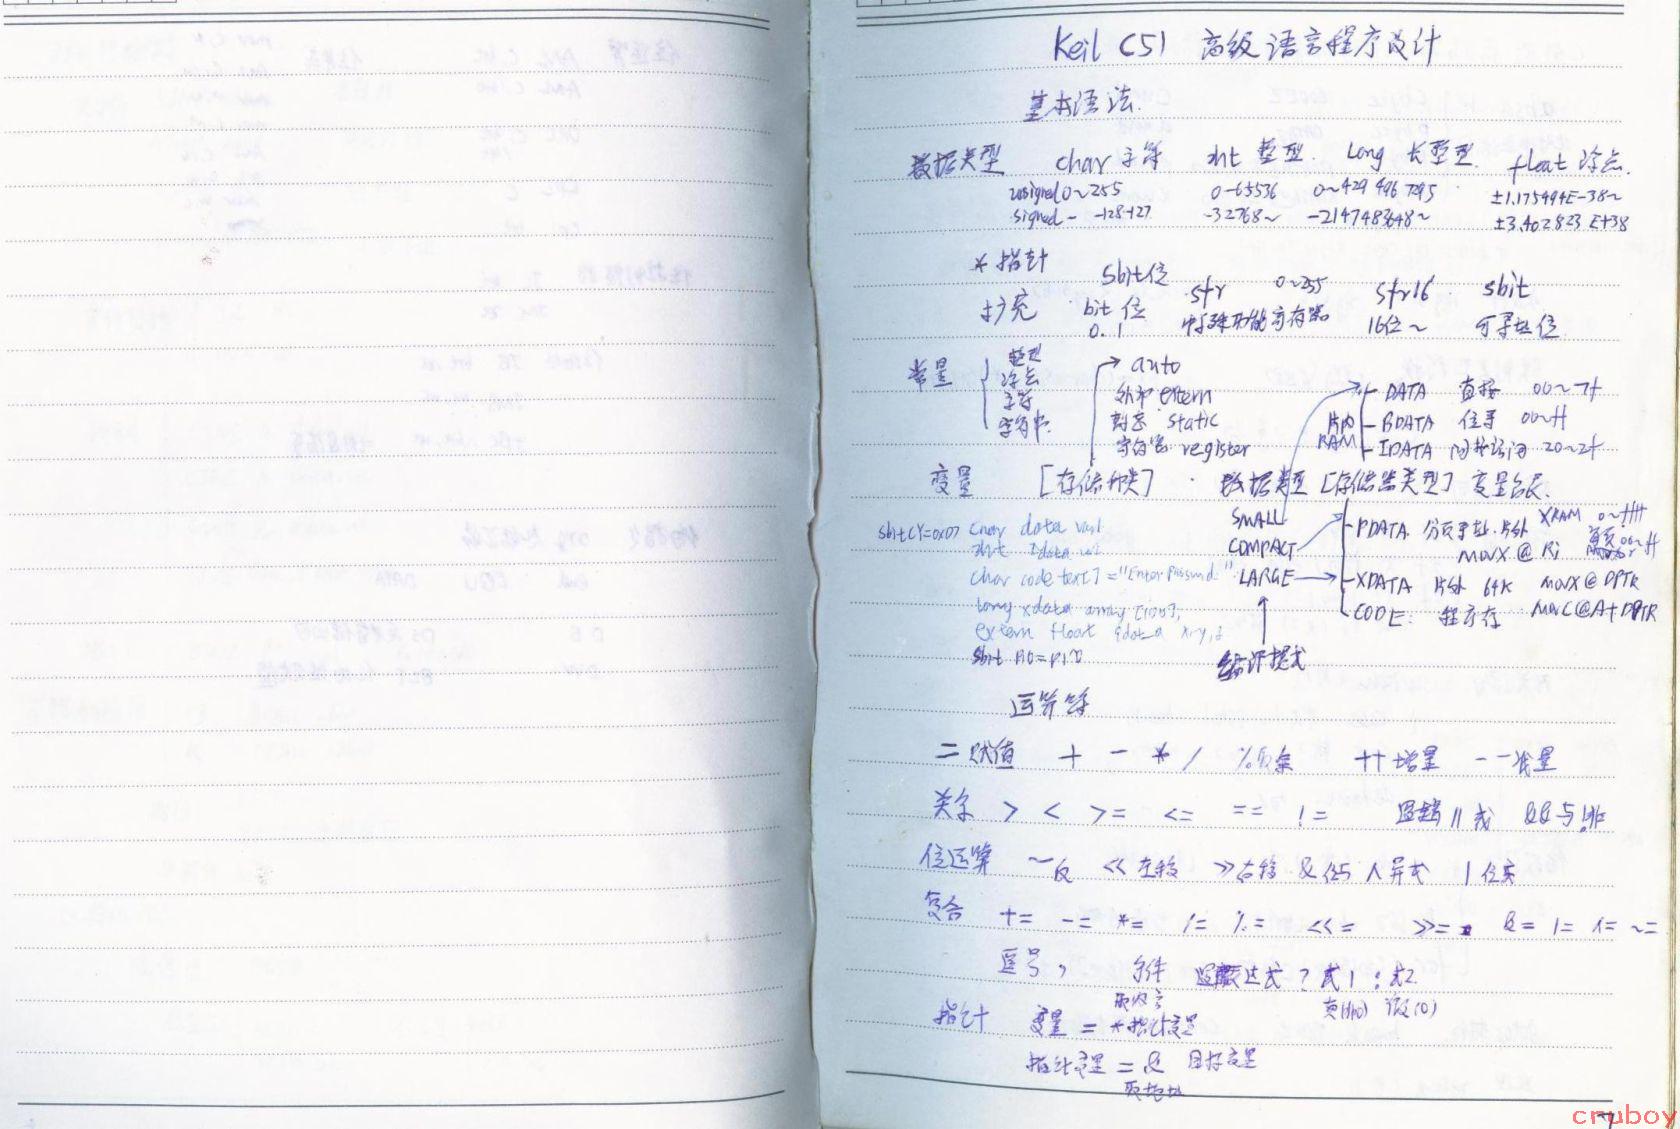 Keil C51 高级语言程序设计
基本语法.
数据类型 char 字符 int 整型. Long 长整型. float 浮点.
unsigned 0~255 0-65536 0~429 496 7295 ±1.175494E-38~
signed - -128+127 -32768~ -2147483648~ ±3.402823 E+38
* 指针 sbit位 sfr 0~255 sfr16 sbit
扩充 bit 位 特殊功能寄存器 16位~ 可寻址位
0.1
常量 整型 auto DATA 直接 00~7f
浮点 外部 extern
字符 静态 static 片内 BDATA 位寻 00~ff
字符串. 寄存器 register RAM IDATA 间接访问 20~2f
变量 [存储种类] 数据类型 [存储器类型] 变量名表.
sbit CY=0xD7 char data var1 SMALL PDATA 分页寻址.片外 XRAM 0~ffff
int idata var2 COMPACT MOVX @ Ri 00~ff
char code text[]="Enter Passwd:" LARGE XDATA 片外 64K MOVX @ DPTR
long xdata array [100]; CODE: 程序存 MOVC@A+DPTR
extern float idata x,y,z
sbit A0=P1^0 编译模式
运算符
= 赋值 + - * / %取余 ++ 增量 -- 减量
关系 > < >= <= == != 逻辑 || 或 && 与 !非
位运算 ~反 << 左移 >>右移 & 位与 ^ 异或 | 位或
复合 += -= *= /= %= <<= >>= &= |= ^= ~=
逗号 , 条件 逻辑表达式 ? 式1 : 式2
真(非0) 假(0)
取内容
指针 变量 = *指针变量
指针变量 = & 目标变量
取地址
7
cruboy